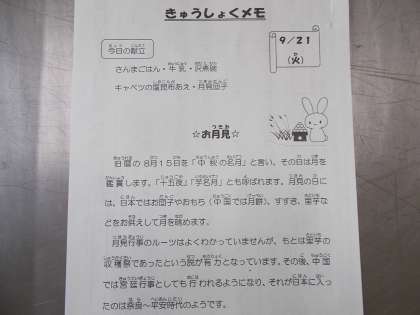 きゅうしょくメモ
9/21
(火)
今日の献立
さんまごはん・牛乳・沢煮椀
キャベツの塩昆布あえ・月見団子
☆お月見☆
旧暦の8月15日を「中秋の名月」と言い、その日は月を
鑑賞します。「十五夜」「芋名月」とも呼ばれます。月見の日に
は、日本ではお団子やおもち(中国では月餅)、すすき、里芋な
どをお供えして月を眺めます。
月見行事のルーツはよくわかっていませんが、もとは里芋の
収穫祭であったという説が有力となっています。その後、中国
では宮廷行事としても行われるようになり、それが日本に入っ
たのは奈良～平安時代のようです。